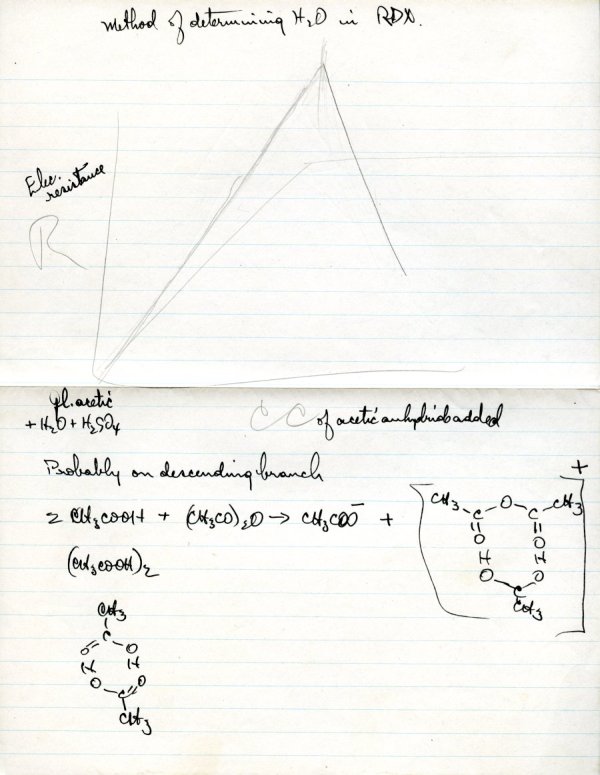 Method of determining H₂O in RDX.
Elec.
resistance
R
gl. acetic
+ H₂O + H₂SO₄
CC of acetic anhydride added
Probably on descending branch
2 CH₃COOH + (CH₃CO)₂O → CH₃COO⁻ + [
+
CH₃ C O C CH₃
O O
H H
O O
C
CH₃
]
(CH₃COOH)₂
CH₃
C
O O
H H
O O
C
CH₃